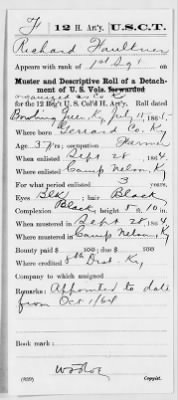 F 12 H. Art'y. U.S.C.T.
Richard Faulkner
Appears with rank of 1st Sgt
Muster and Descriptive Roll of a Detachment of U. S. Vols. forwarded
organized as Co F
for the 12 Reg't U. S. Col'd H. Art'y. Roll dated
Bowling Green, Ky July 11, 1865.
Where born Gerrard Co. Ky
Age 37 y'rs; occupation Farmer
When enlisted Sept 28, 1864
Where enlisted Camp Nelson, Ky
For what period enlisted 3 years.
Eyes Blk; hair Black
Complexion Black; height 5 ft. 10 in.
When mustered in Sept 28, 1864
Where mustered in Camp Nelson, Ky
Bounty paid $ 100; due $ 100
Where credited 8th Dist. Ky
Company to which assigned
Remarks: Appointed to date
from Oct 1/64
Book mark:
Copyist.